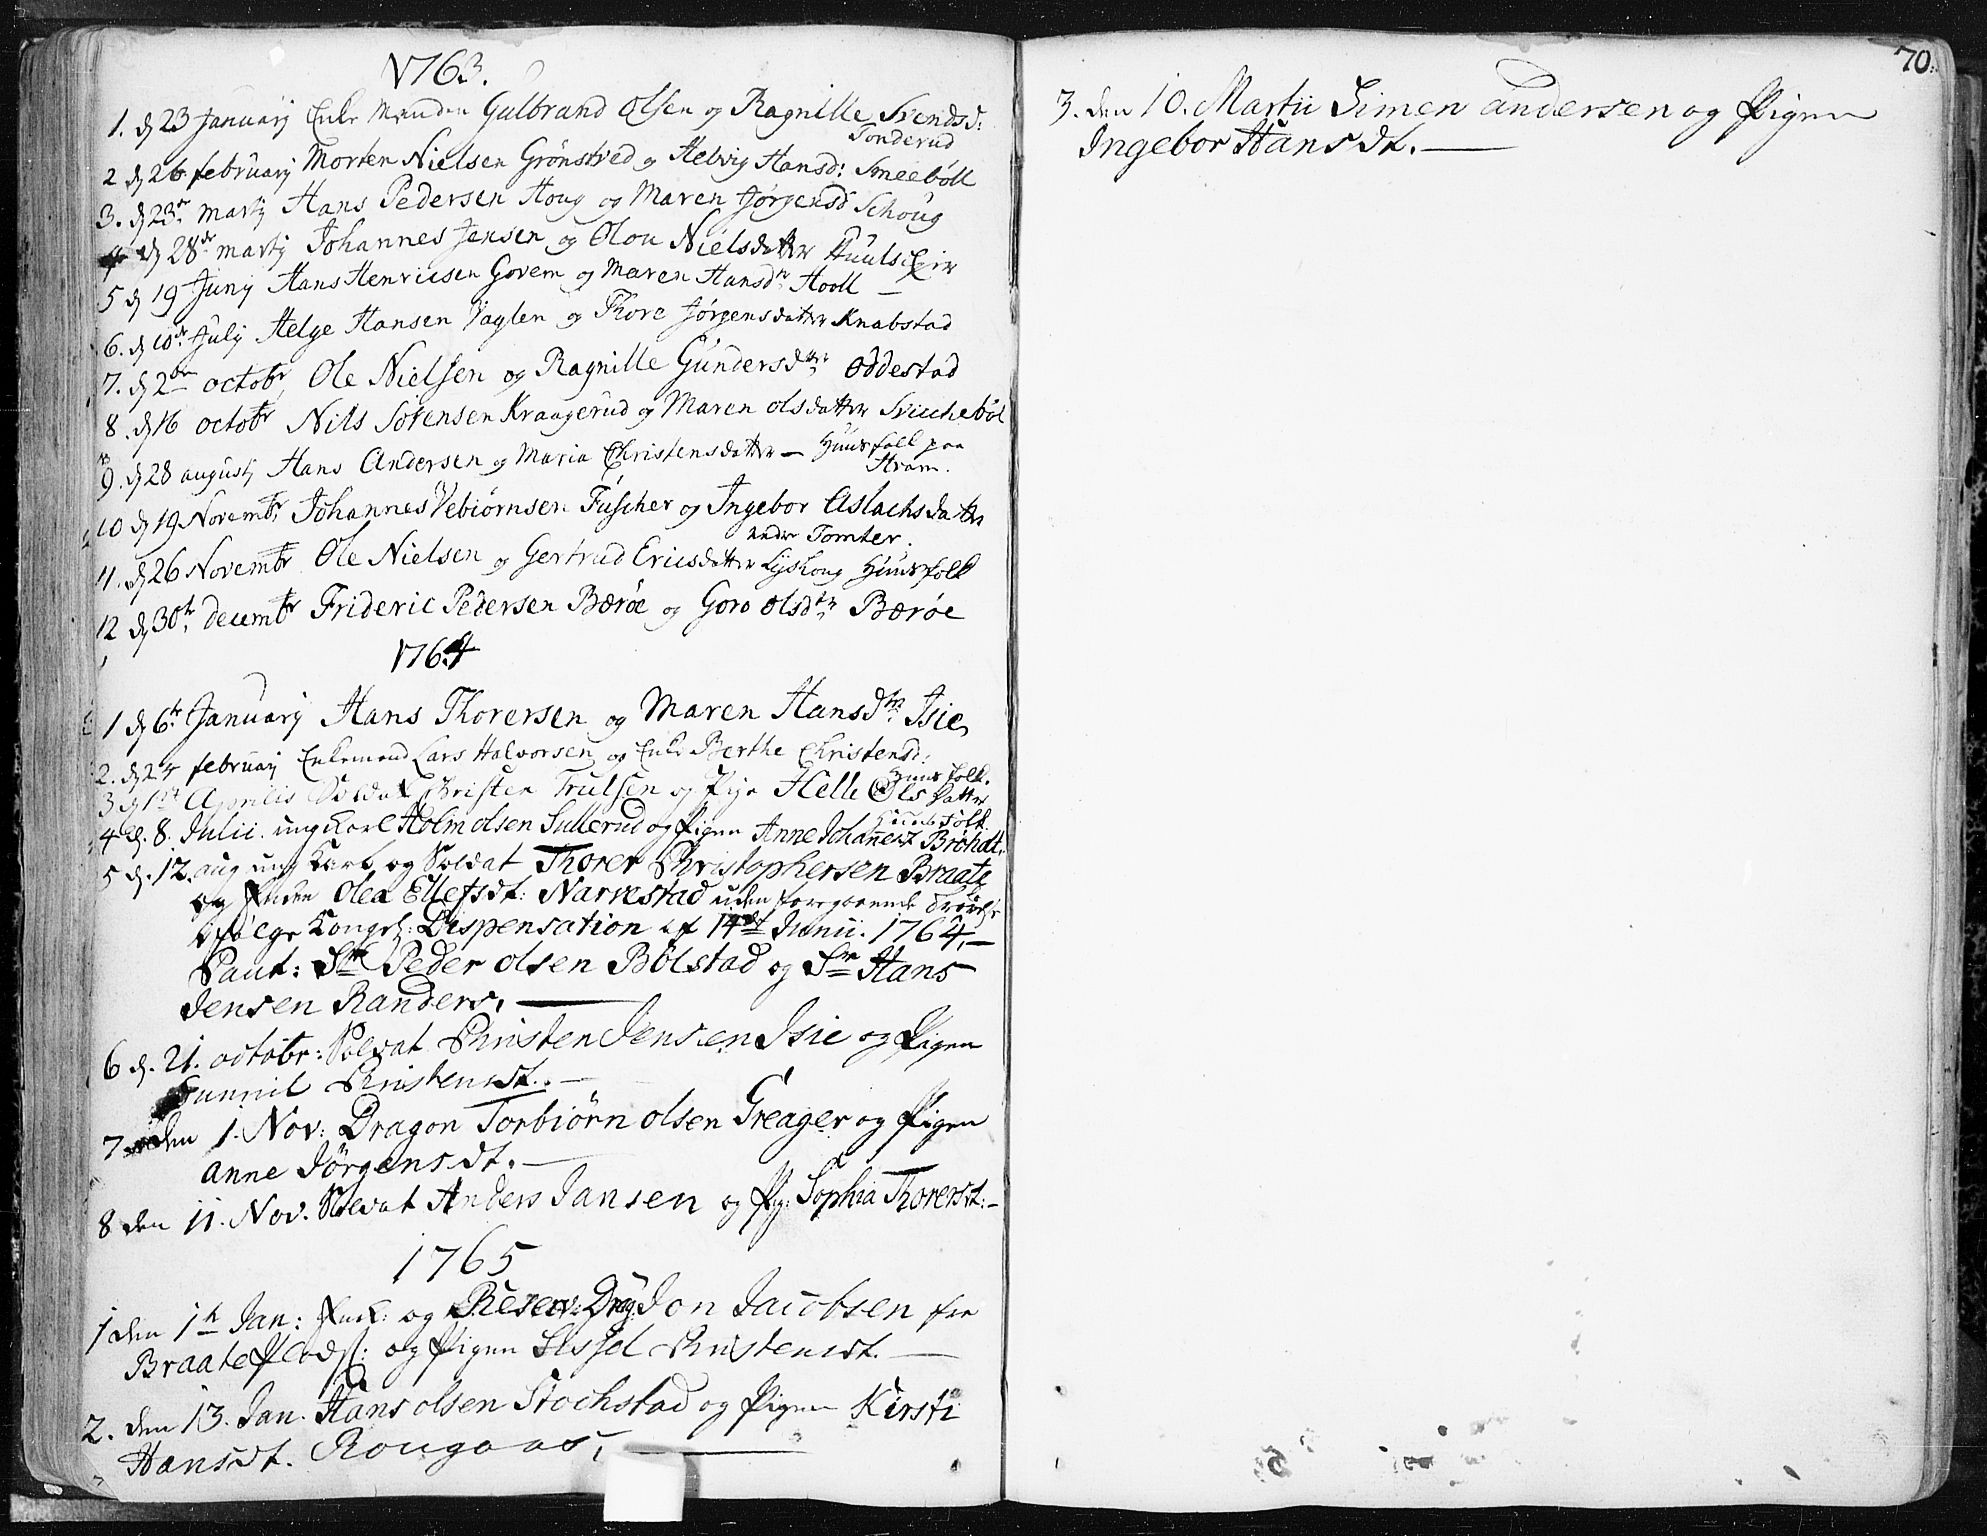 1763.
1. d 23 Januarij Enke Manden Gulbrand Olsen og Ragnille Svendsd:
Tonderud
2 d 26 februarij Morten Nielsen Grönsved og Helvig Hansd: Smeeböll
3. d 23de martij Hans Pedersen Houg og Maren Jørgensd Schoug
4 d 28de martij Johannes Jensen og Olou Nielsdatter
5 d 19 Junij Hans Henricsen Govem og Maren Hansdtr Hooll —
6. d 10de Julij Helge Hansen Vaglen og Thore Jørgensdatter Knabstad
7. d 2den octobr, Ole Nielsen og Ragnille Gundersdtr: Oddestad
8. d 16 octobr Nils Sørensen Kraagerud og Maren olsdatter
9. d 28 augustj Hans Andersen og Maria Christensdatter — Huusfolk paa
Strøm.
10 d 19 Novembr, Johannes Vebiørnsen Fuscher og Ingebor Aslachsdattr
under Tomter.
11. d 26 Novembr Ole Nielsen og Gertrud Ericsdatter Lyshoug Huusfolk
12 d 30te, decembr Frideric Pedersen Bærøe og Goro olsdtr Bærøe
1764
1 d 6te Januarij Hans Thorersen og Maren Hansdtr: Isie
2. d 24 februarij Enkemand Lars Halvorsen og Enke Berthe Christensd:
Huusfolk.
3 d 1st Aprilis Soldat Christen Trulsen og Pige Helle Olsdatter
Huusfolk
4 d. 8. Julii. ung Karl Holm olsen Sullerud og Pigen Anne Johannesdt Bröhdt.
5 d. 12. aug ung Karl og Soldat Thorer Christophersen Braate
og Enken Olea Ellefsdt: Narvestad uden foregaaende Trolov:
Ifølge Kongel: Dispensation af 14de Junii. 1764, —
Caut: Sr Peder olsen Bölstad og Sr Hans
Jensen Randers, —
6 d. 21. octobr: Soldat Christen Jensen Isie og Pigen
Gunnil Christensdt. —
7 den 1. Nov: Dragon Torbiörn olsen Greager og Pigen
anne Jörgensdt. —
8 den 11. Nov. Soldat Anders Jansen og Pig: Sophia Thorersdt: —
1765
1 den 1te Jan: Enk: og Reserv: Drag: Jon Jacobsen fra
Braate og Pigen Sissel Christensdt. —
2. den 13. Jan. Hans olsen Stochstad og Pigen Kirsti
Hansdt. Rougaas, —
70.
3. den 10. Martii Simen andersen og Pigen
Ingebor Hansdt. —